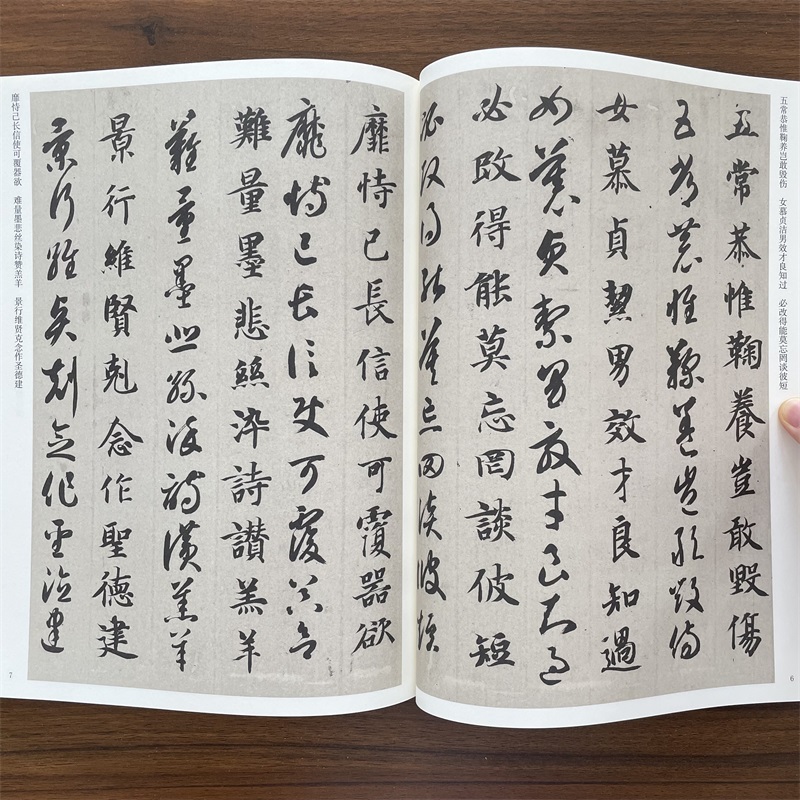 五常恭惟鞠养岂敢毁伤　女慕贞洁男效才良知过　必改得能莫忘罔谈彼短
6
五常恭惟鞠養豈敢毀傷
五常恭惟鞠養豈敢毀傷
女慕貞絜男效才良知過
女慕貞絜男效才良知過
必改得能莫忘罔談彼短
必改得能莫忘罔談彼短
靡恃己長信使可覆器欲
靡恃己長信使可覆器欲
難量墨悲絲染詩讚羔羊
難量墨悲絲染詩讚羔羊
景行維賢剋念作聖德建
景行維賢剋念作聖德建
靡恃己长信使可覆器欲　难量墨悲丝染诗赞羔羊　景行维贤克念作圣德建
7